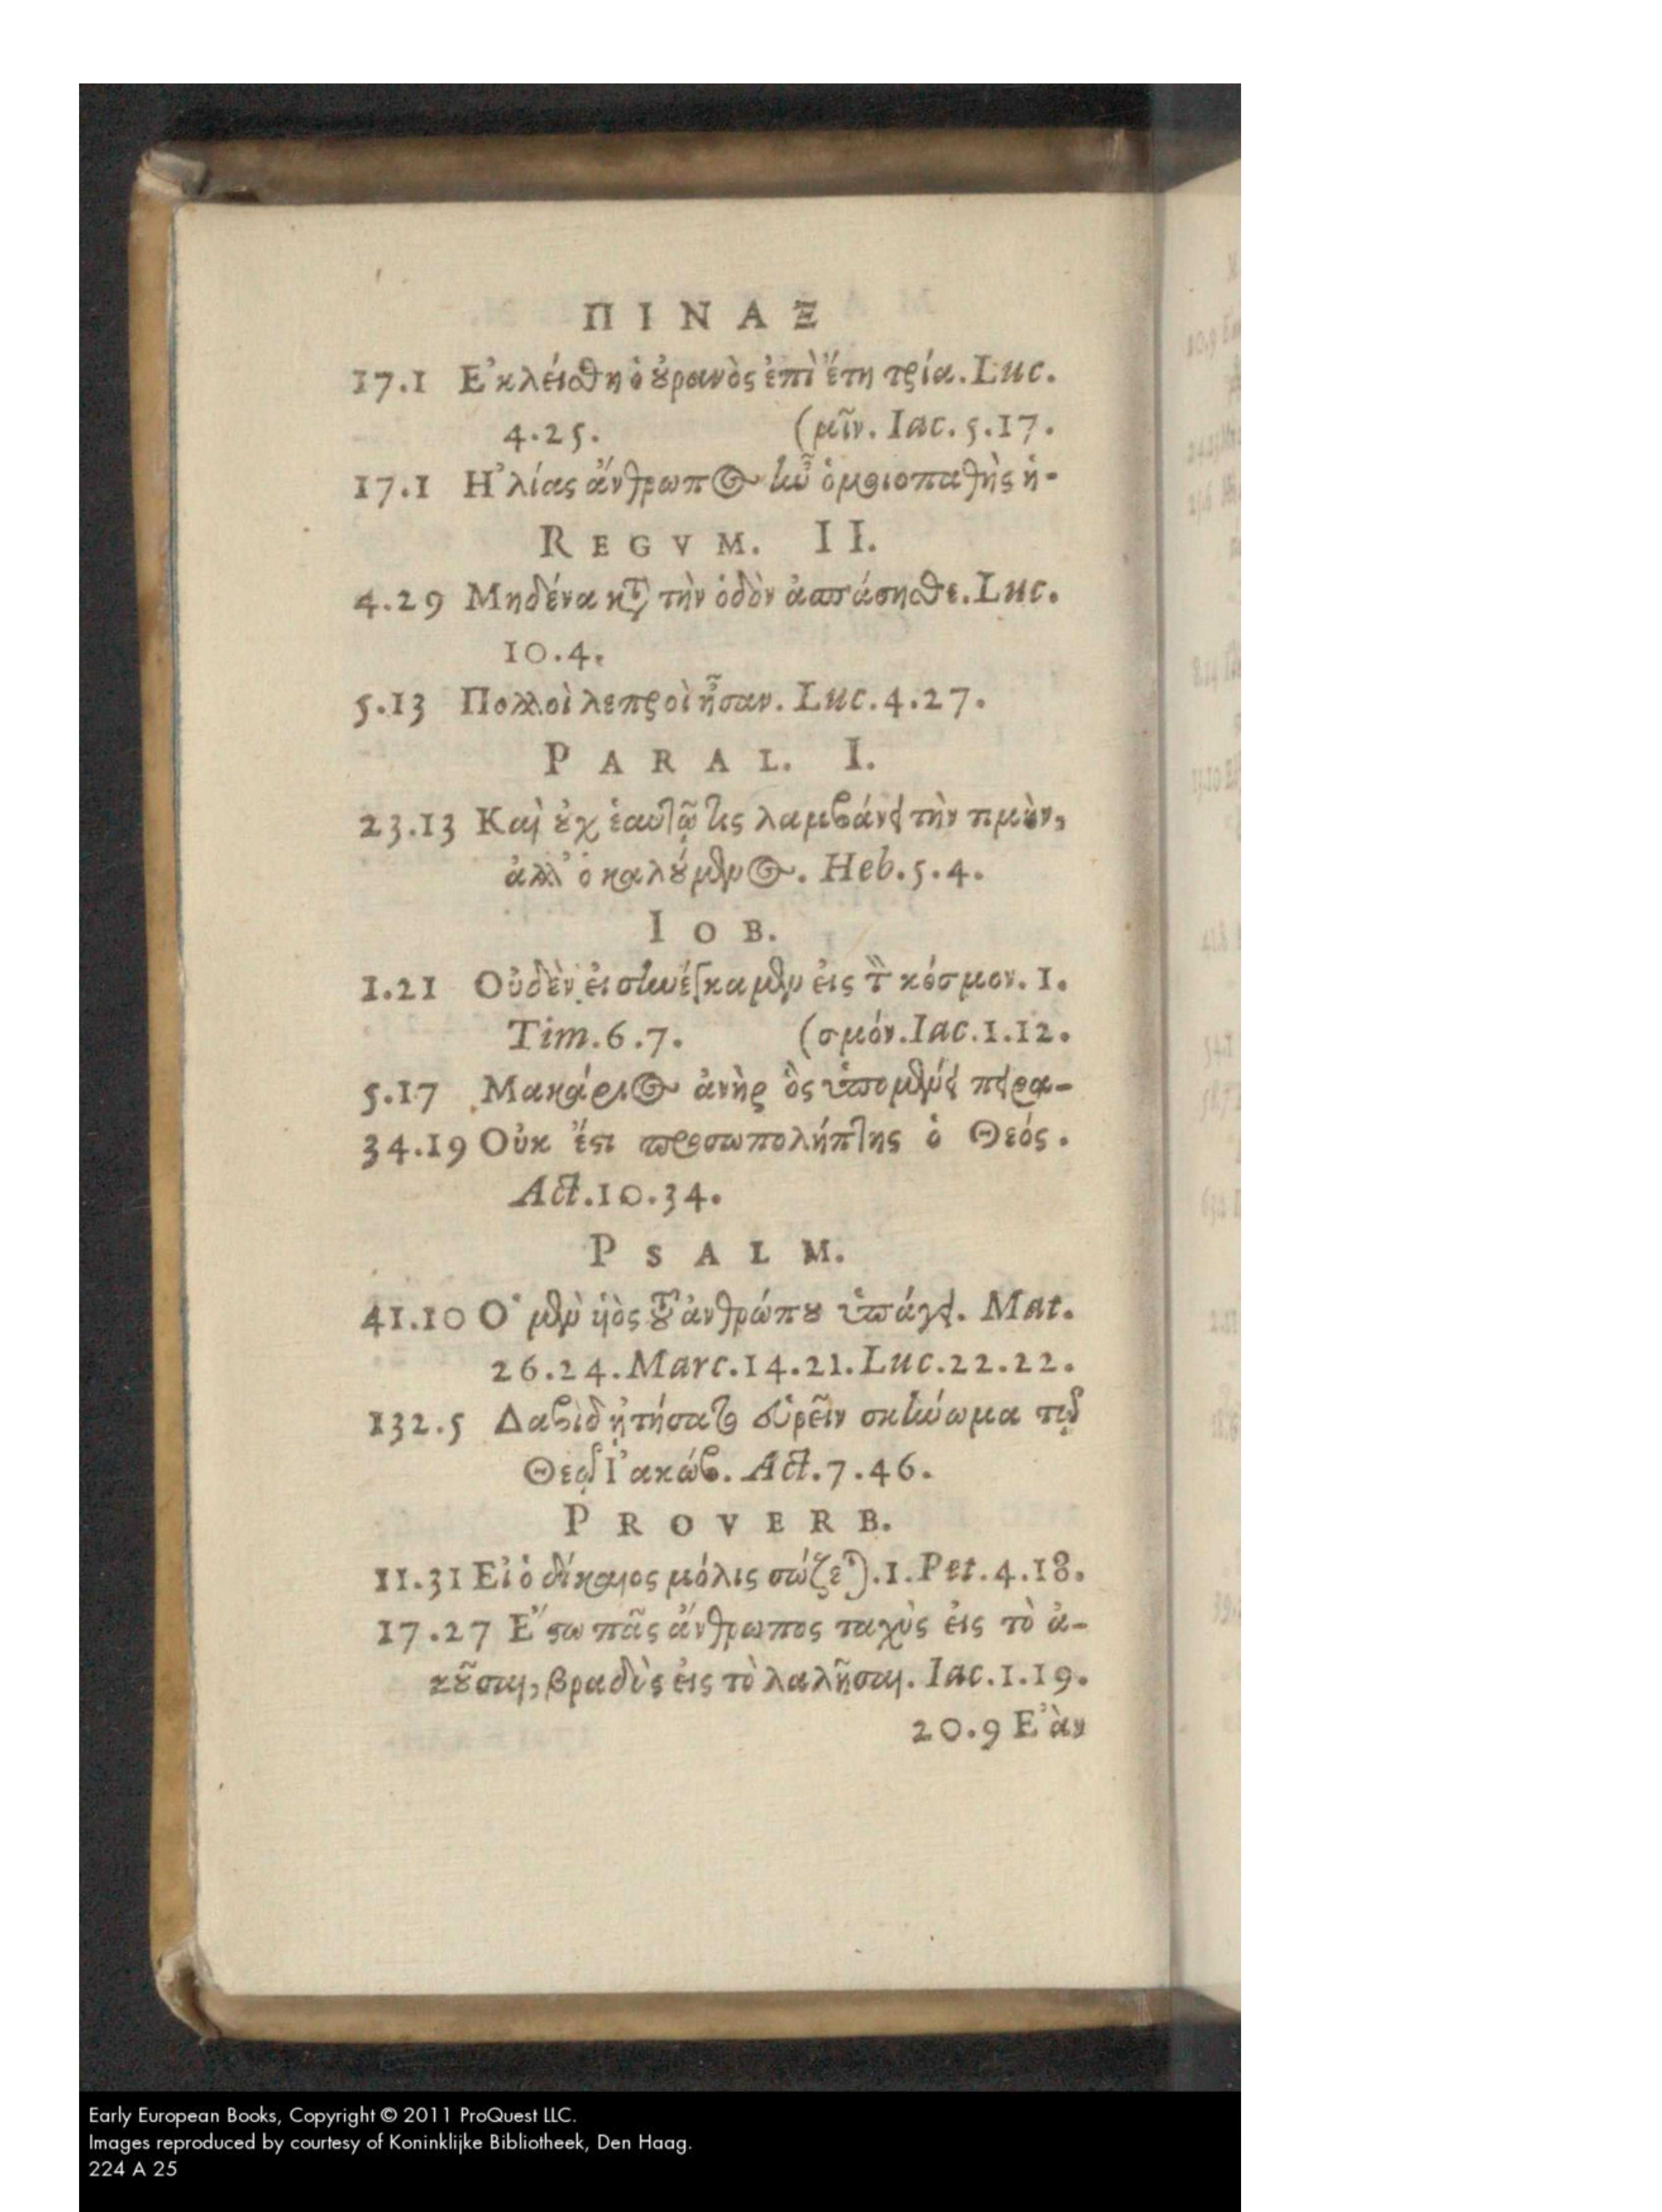 ΠΙΝΑΞ
17.1 Ἐκλείσθη ὁ οὐρανὸς ἐπὶ ἔτη τρία. Luc.
4.25. (μῖν. Iac. 5.17.
17.1 Ἠλίας ἄνθρωπος ἦν ὁμοιοπαθὴς ἡ-
REGVM. II.
4.29 Μηδένα κτ τὴν ὁδὸν ἀσπάσησθε. Luc.
10.4.
5.13 Πολλοὶ λεπροὶ ἦσαν. Luc. 4.27.
PARAL. I.
23.13 Καὶ οὐχ ἑαυτῷ τις λαμβάνει τὴν τιμὴν,
ἀλλ' ὁ καλούμενος. Heb. 5.4.
IOB.
1.21 Οὐδὲν εἰσηνέγκαμεν εἰς τὸν κόσμον. 1.
Tim. 6.7. (σμόν. Iac. 1.12.
5.17 Μακάριος ἀνὴρ ὃς ὑπομένει πειρα-
34.19 Οὐκ ἔστι προσωπολήπτης ὁ Θεός.
Act. 10.34.
PSALM.
41.10 Ὁ μὲν υἱὸς τοῦ ἀνθρώπου ὑπάγει. Mat.
26.24. Marc. 14.21. Luc. 22.22.
132.5 Δαβὶδ ᾐτήσατο εὑρεῖν σκήνωμα τῷ
Θεῷ Ἰακώβ. Act. 7.46.
PROVERB.
11.31 Εἰ ὁ δίκαιος μόλις σώζεται. 1. Pet. 4.18.
17.27 Ἔστω πᾶς ἄνθρωπος ταχὺς εἰς τὸ ἀ-
κοῦσαι, βραδὺς εἰς τὸ λαλῆσαι. Iac. 1.19.
20.9 Ἐὰν
Early European Books, Copyright © 2011 ProQuest LLC.
Images reproduced by courtesy of Koninklijke Bibliotheek, Den Haag.
224 A 25